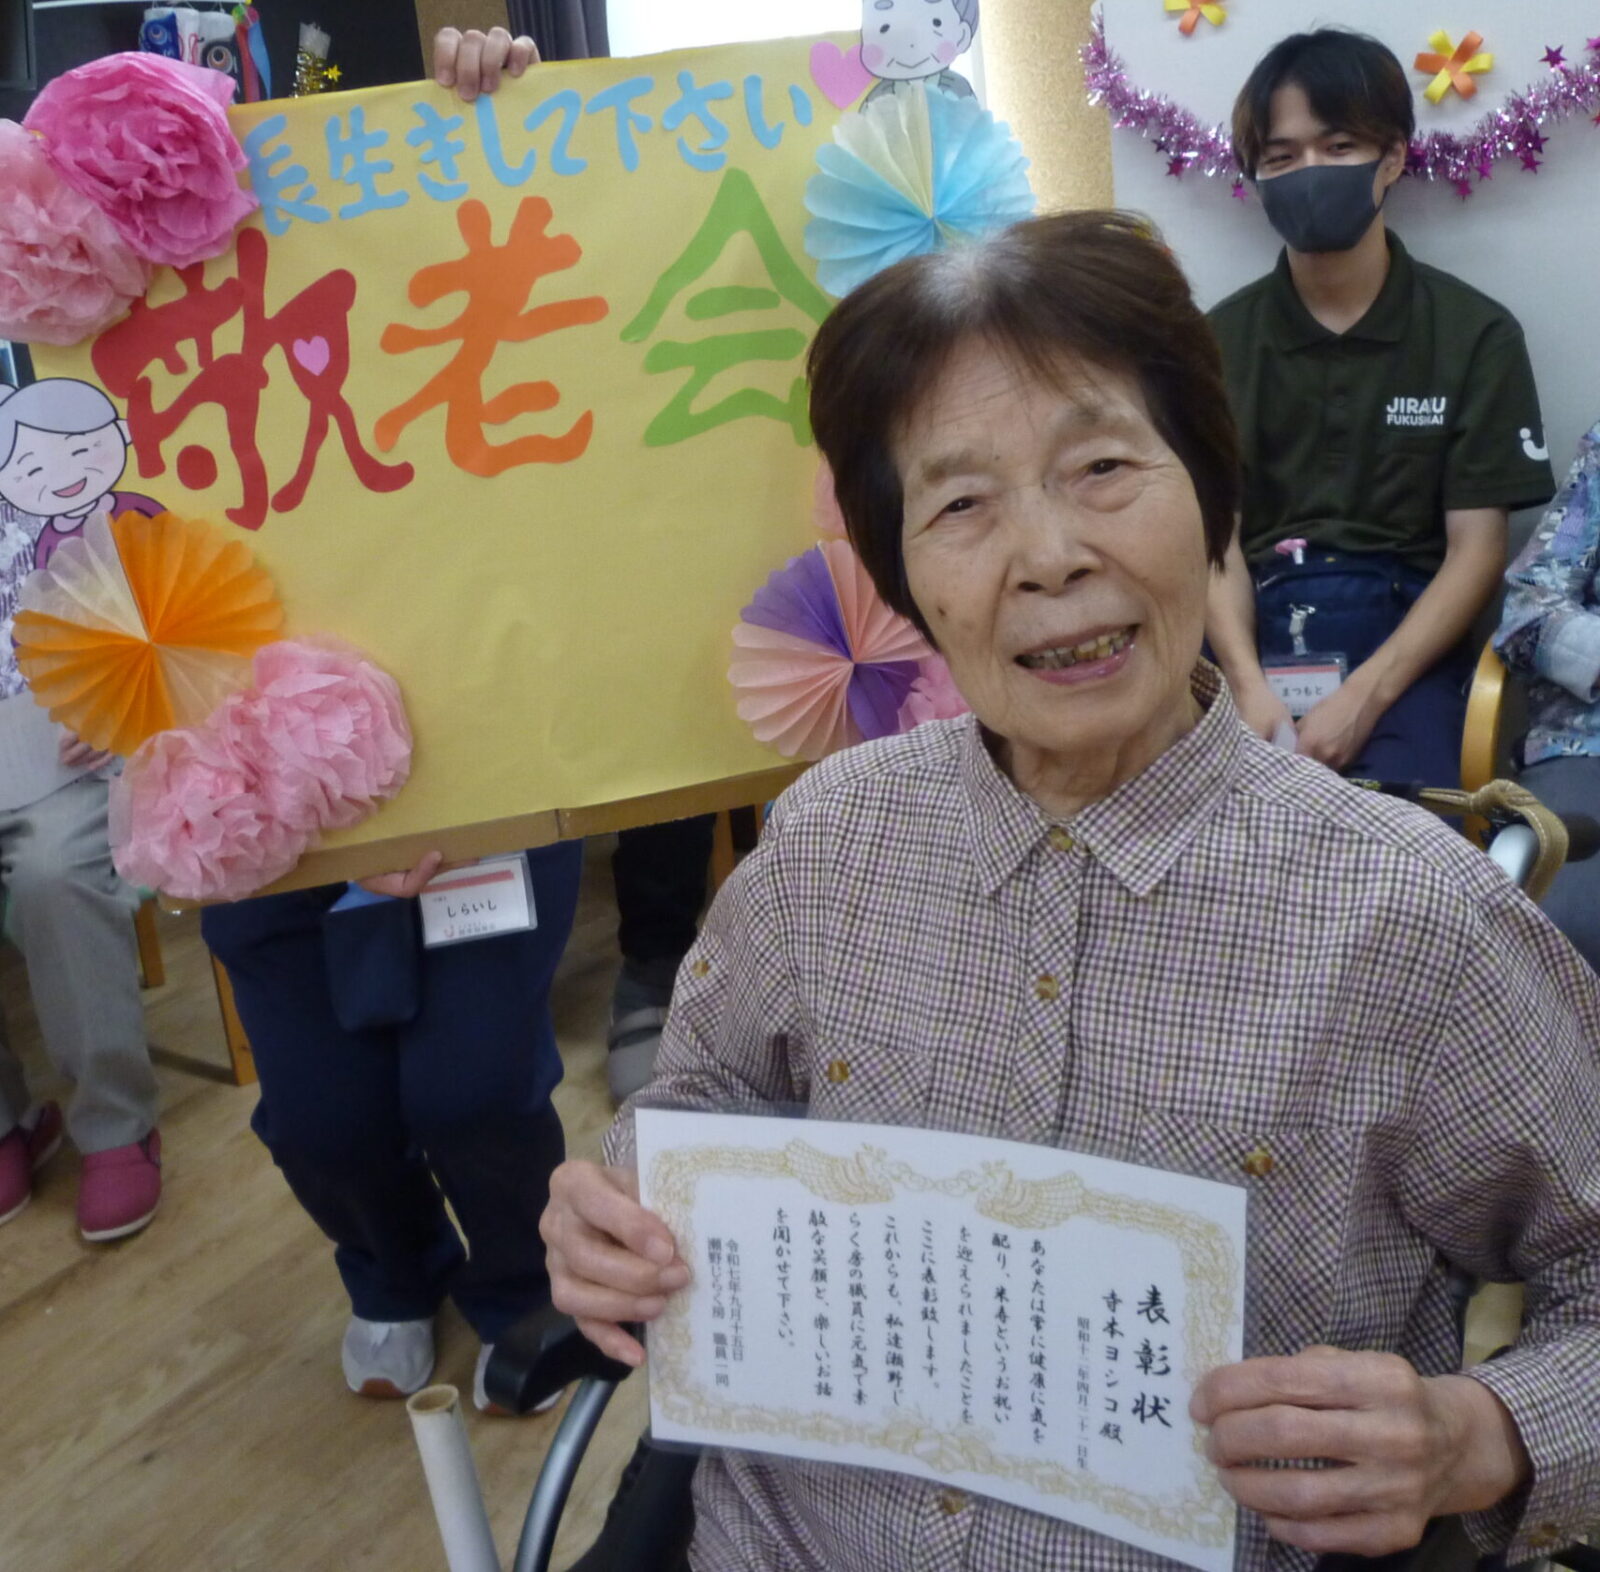 長生きして下さい
敬老会
JIRAKU
FUKUSHIKAI
まつもと
しらいし
表彰状
寺本ヨシコ殿
昭和十二年四月二十一日生
あなたは常に健康に気を
配り、米寿というお祝い
を迎えられましたことを
ここに表彰致します。
これからも、私達瀬野じ
らく房の職員に元気で素
敵な笑顔と、楽しいお話
を聞かせて下さい。
令和七年九月十五日
瀬野じらく房　職員一同